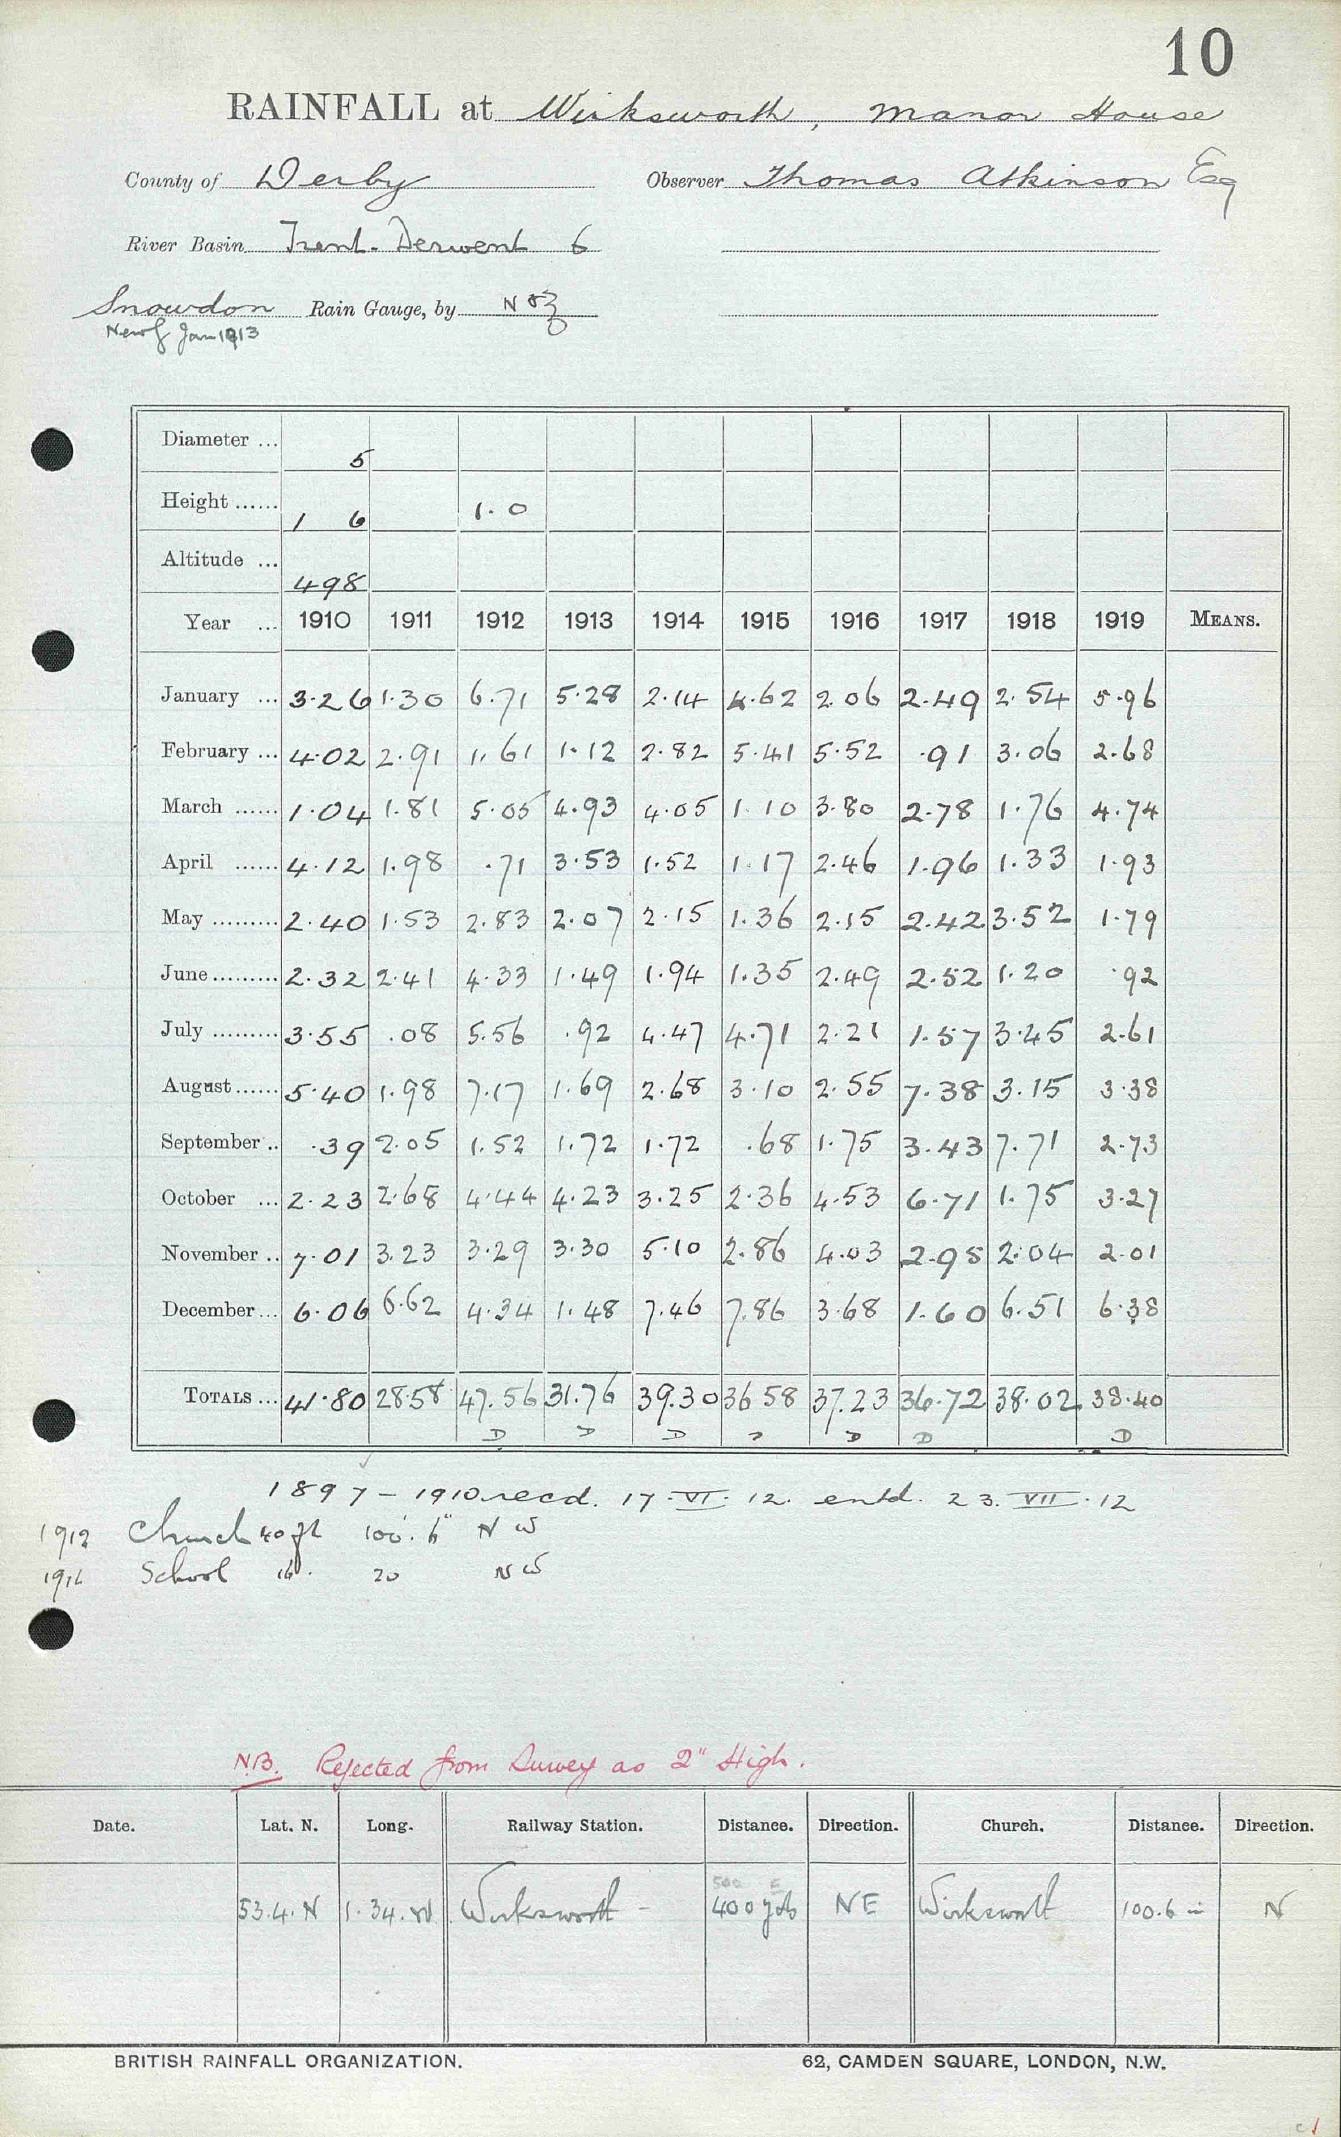 10
RAINFALL at Wirksworth, Manor House
County of Derby Observer Thomas Atkinson Esq
River Basin Trent-Derwent 6
Snowdon Rain Gauge, by N & Z
New G Jan 1913
Diameter ... 5
Height ...... 1 6 1.0
Altitude ... 498
Year ... 1910 1911 1912 1913 1914 1915 1916 1917 1918 1919 MEANS.
January ... 3.26 1.30 6.71 5.28 2.14 4.62 2.06 2.49 2.54 5.96
February ... 4.02 2.91 1.61 1.12 2.82 5.41 5.52 .91 3.06 2.68
March ...... 1.04 1.81 5.05 4.93 4.05 1.10 3.80 2.78 1.76 4.74
April ...... 4.12 1.98 .71 3.53 1.52 1.17 2.46 1.96 1.33 1.93
May ......... 2.40 1.53 2.83 2.07 2.15 1.36 2.15 2.42 3.52 1.79
June ......... 2.32 2.41 4.33 1.49 1.94 1.35 2.49 2.52 1.20 .92
July ......... 3.55 .08 5.56 .92 4.47 4.71 2.21 1.57 3.45 2.61
August ...... 5.40 1.98 7.17 1.69 2.68 3.10 2.55 7.38 3.15 3.38
September .. .39 2.05 1.52 1.72 1.72 .68 1.75 3.43 7.71 2.73
October ... 2.23 2.68 4.44 4.23 3.25 2.36 4.53 6.71 1.75 3.27
November .. 7.01 3.23 3.29 3.30 5.10 2.86 4.03 2.95 2.04 2.01
December ... 6.06 6.62 4.34 1.48 7.46 7.86 3.68 1.60 6.51 6.38
TOTALS ... 41.80 28.58 47.56 31.76 39.30 36 58 37.23 36.72 38.02 38.40
D D D D D D
1897 - 1910 recd. 17.VI.12. entd. 23.VII.12
1912 Church 40 ft 100'. 6" N W
1916 School 16. 20 N W
N.B. Rejected from Survey as 2" High.
Date. Lat. N. Long. Railway Station. Distance. Direction. Church. Distance. Direction.
500 E
53.4.N 1.34.W Wirksworth - 400 yds NE Wirksworth 100.6 in N
BRITISH RAINFALL ORGANIZATION. 62, CAMDEN SQUARE, LONDON, N.W.